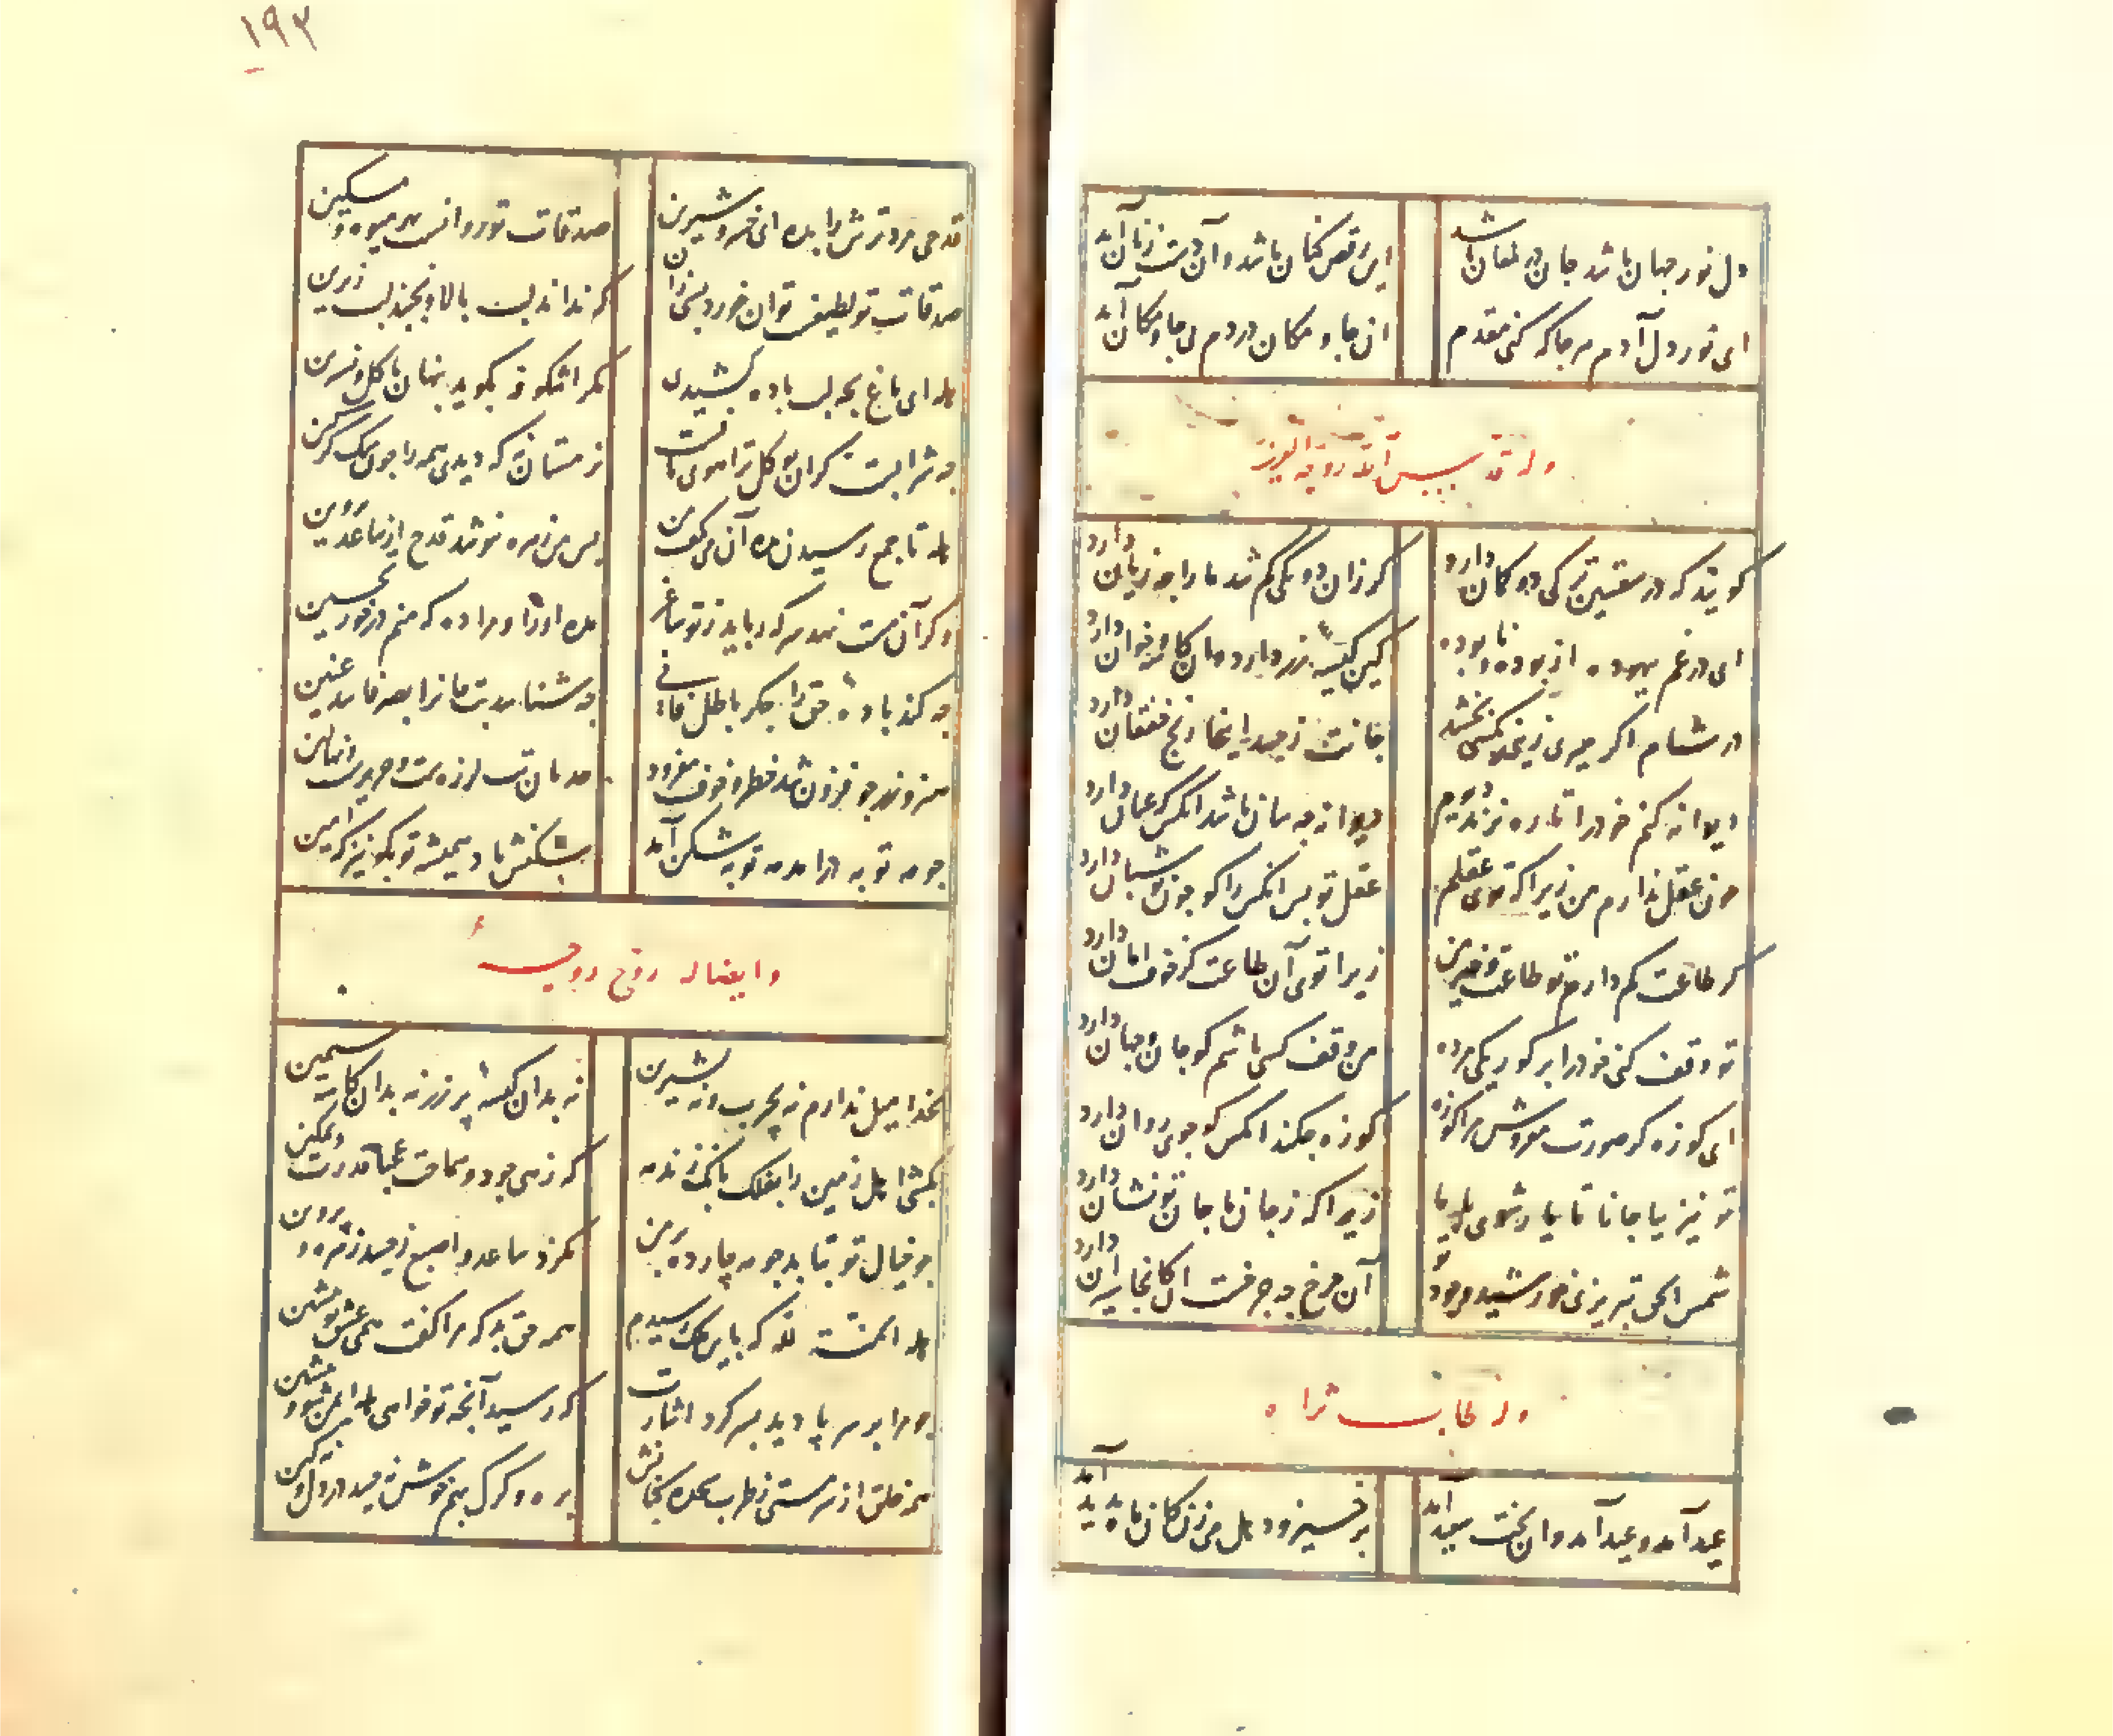 دل نور جهان باشد جان در لمعان باشد
این رقص کنان باشد وآن دست زنان باشد
ای نور دل آدم هر جا که کنی مقدم
آن جا و مکان در دم بی جا و مکان باشد
وله قدس الله روحه العزیز
گویند که در سقسین ترکی دو کمان دارد
گر زان دو یکی گم شد ما را چه زیان دارد
ای در غم بیهوده از بوده و نابوده
کین کیسهٔ زر دارد وان کاسه و خوان دارد
در شام اگر میری زینی بکسی بخشد
جانت ز حسد اینجا رنج خفقان دارد
دیوانه کنم خود را تا هرزه نیندیشم
دیوانه چه سان باشد آنکس که عیان دارد
چون عقل ندارم من زیرا که تویی عقلم
عقل تو بس آنکس را کو چون تو شبان دارد
گر طاعت کم دارم تو طاعت و خیر من
زیرا تویی آن طاعت کز خوف امان دارد
تو وقف کنی خود را بر گور یکی مرده
من وقف کسی باشم کو جان و جهان دارد
ای کوزه گر صورت مفروش مرا کوزه
کوزه چکند آنکس کو جوی روان دارد
تو نیز بیا جانا تا یار شوی ما را
زیرا که ز جان ما جان تو نشان دارد
شمس الحق تبریزی خورشید وجود
آن چرخ چه چرخست آن کانجا سیران دارد
وله طاب ثراه
عید آمد و عید آمد وان بخت سعید آمد
برخیز و دهل میزن کان ماه پدید آمد
۱۹۳
قدحی مرد ترش را بده ای خسرو شیرین
صدقات تو روانست بهر بیوه و مسکین
صدقات تو لطیفست توان خورد
که نداند لب بالا و نجنبد لب زیرین
هله ای باغ بچه لب باده کشیدی
مگر اشکوفه بگوید پنهان با گل و نسرین
چه شرابست کزان بو گل تر آهوی نافست
به زمستان که دیدی همه را چون سگ گرگین
هله تا جمع رسیدن بده آن می بکف من
پس من زهره بنوشد قدح از ساعد پروین
وگر آن مست نهد سر که رباید ز تو ساغر
مده او را تو مرا ده که منم در خور تحسین
چه کند بادهٔ حق را جگر باطل فانی
چه شناسد مه جان را نظر فاسد عنین
هنر و زر چو فزون شد خطر و خوف فزون شد
چو مه توبه درآمد مه توبه شکن آمد
شکنش باد همیشه تو بگو نیز که آمین
وایضاً له روّح روحه
بخدا میل ندارم نه بچرب و نه بشیرین
نه بدان کیسهٔ پر زر نه بدان کاسهٔ سیمین
بکشی اهل زمین را بفلک بانگ زند مه
که زهی جود و سماحت عجبا قدرت و تمکین
چو خیال تو بتابد چو مه چارده بر من
بگزد ساعد و اصبع ز حسد زهره و پروین
هله المنة لله که بدین ملک رسیدم
همه حق بد که مرا گفت همی عشق تو پیشین
چو مرا بر سر پا دید بسر کرد اشارت
که رسید آنچه تو خواهی هله ایمن شو و بنشین
همه خلق از سر مستی ز طرب سجده کنانش
بره و گرگ بهم خوش نه حسد در دل و نی کین